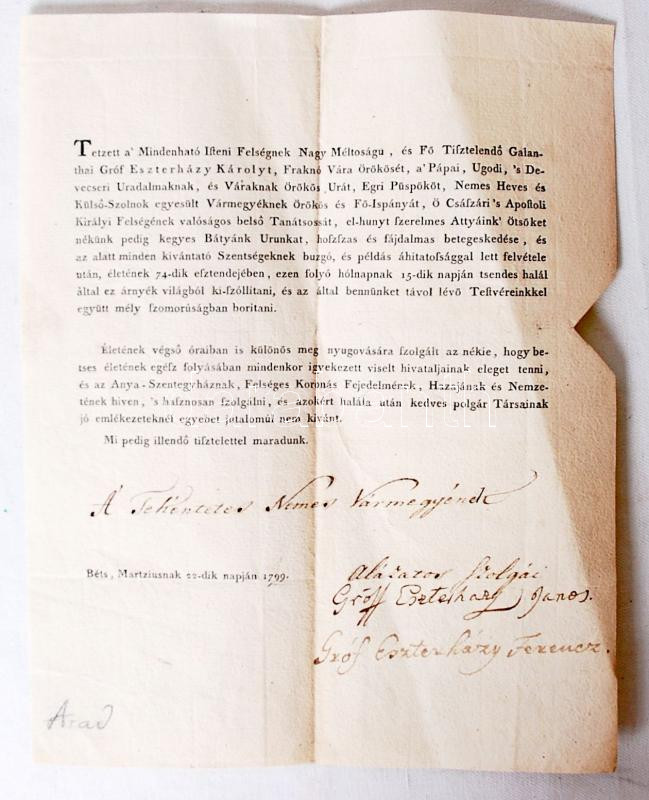 Tetzett a' Mindenható Isteni Felségnek Nagy Méltoságu, és Fő Tisztelendő Galan-
thai Gróf Eszterházy Károlyt, Fraknó Vára Örökösét, a' Pápai, Ugodi, 's De-
vecseri Uradalmaknak, és Váraknak Örökös Urát, Egri Püspököt, Nemes Heves és
Külső-Szolnok egyesült Vármegyéknek Örökös és Fő-Ispányát, Ő Császári 's Apostoli
Királyi Felségének valóságos belső Tanátsossát, el-hunyt szerelmes Attyáink' Ötsöket
nékünk pedig kegyes Bátyánk Urunkat, hoszszas és fájdalmas betegeskedése, és
az alatt minden kivántató Szentségeknek buzgó, és példás áhitatossággal lett felvétele
után, életének 74-dik esztendejében, ezen folyó hólnapnak 15-dik napján tsendes halál
által ez árnyék világból ki-szóllitani, és az által bennünket távol lévő Testvéreinkkel
együtt mély szomorúságban boritani.
Életének végső óraiban is különös meg nyugovására szolgált az nékie, hogy be-
tses életének egész folyásában mindenkor igyekezett viselt hivataljainak eleget tenni,
és az Anya-Szentegyháznak, Felséges Koronás Fejedelmének, Hazájának és Nemze-
tének hiven, 's hasznosan szolgálni, és azokért halála után kedves polgár Társainak
jó emlékezeteknél egyebet jutalomúl nem kivánt.
Mi pedig illendő tisztelettel maradunk.
A' Tekéntetes Nemes Vármegyének
Béts, Martziusnak 22-dik napján 1799.
Alázatos Szolgái
Gróff Eszterhazy János.
Gróf Eszterházy Ferencz.
Arad